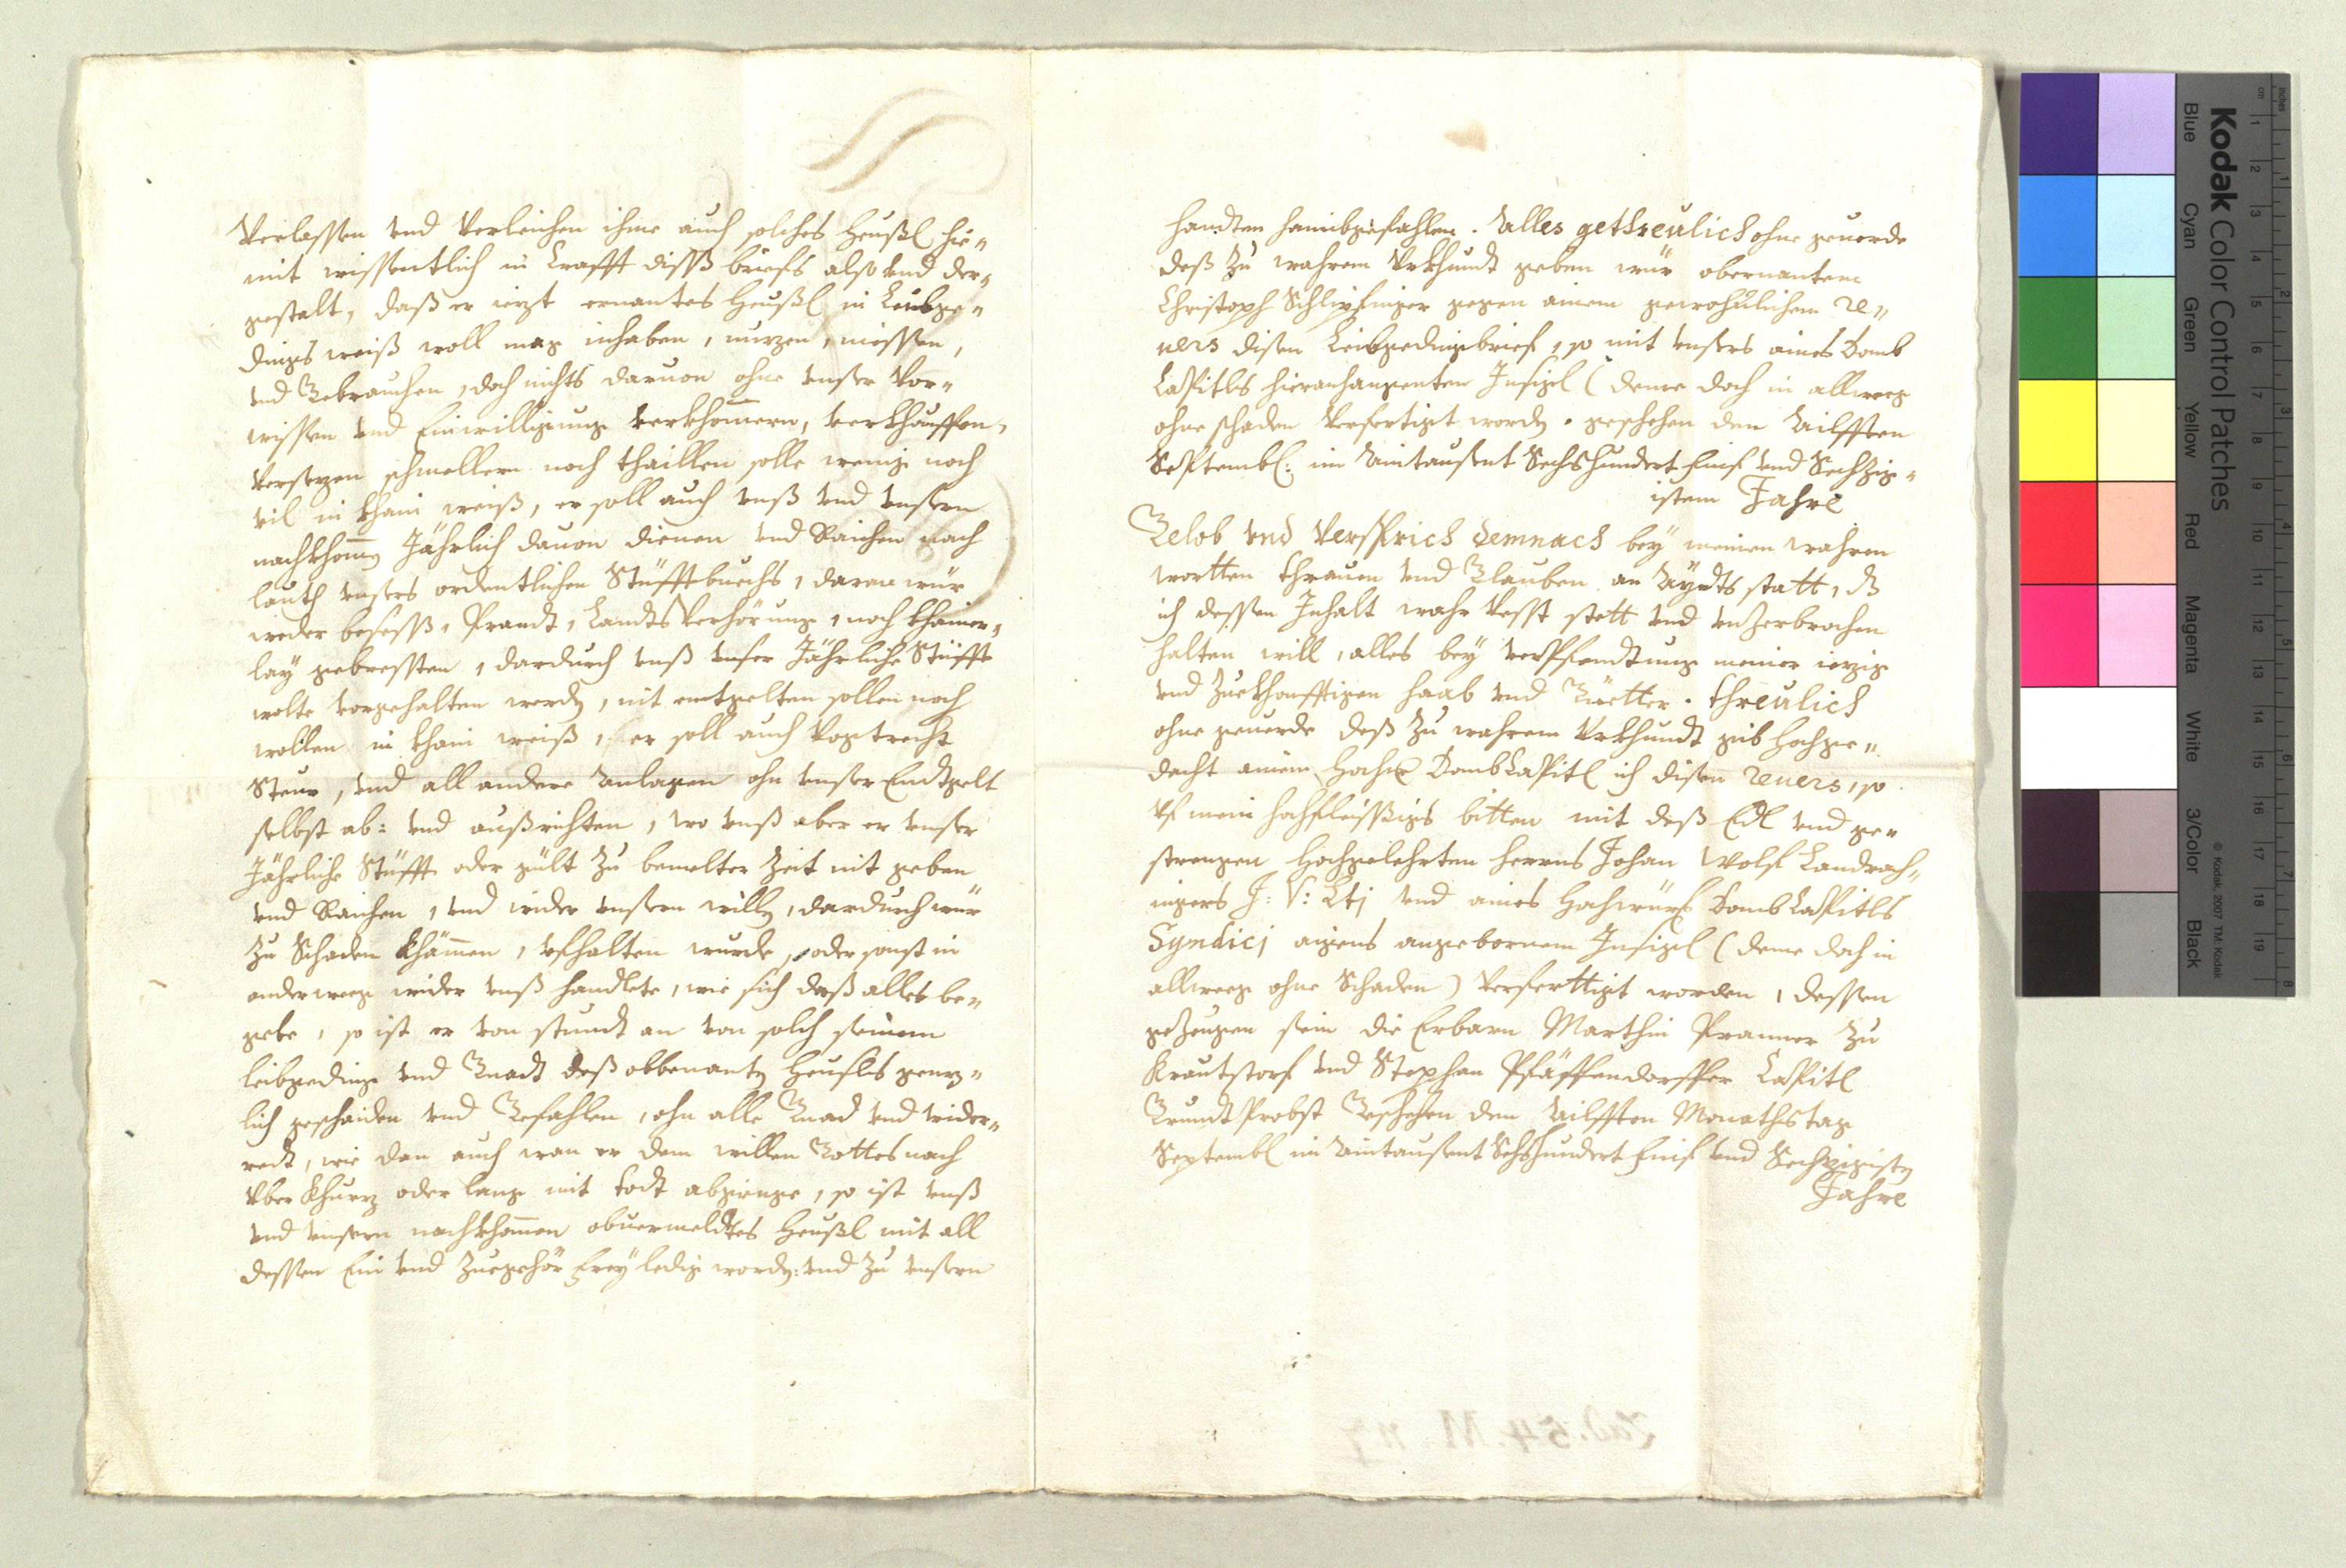 Verlassen vnd Verleichen ihme auch solches Heußl hie„
mit wissentlich in Crafft diss briefs also vnd der„
gestalt, daß er iezt ernantes Heußl in Leibge„
dings weiß woll mag inhaben, nuzen, niessen,
vnd Gebrauchen, doch nichts daruon ohne vnser Vor„
wissen vnd Einwilligung verkhomern, verkhauffen,
Versezen schmellern noch thaillen solle wenig noch
vil in khain weiß, er soll auch vnß vnd vnsern
nachkhomen Jährlich dauon dienen vnd Raichen nach
lauth vnsers ordentlichen Stüfftbuechs, daran wür
weder besess, Prandt, Landts Verhörung, noch khainer„
lay gebressten, dardurch vnß vnser Jährliche Stüfft
wolte vorgehalten werden, nit entgelten sollen noch
wollen in khain weiß, er soll auch Vogtrecht
Steur, vnd all andere Anlagen ohn vnser Endtgelt
selbst ab= vnd außrichten, wo vnß aber er vnser
Jährliche Stüfft oder gült zu bemelter Zeit nit geben
vnd Raichen, vnd wider vnsern willen, dardurch wür
zu Schaden khämen, vfhalten wurde, oder sonst in
anderweeg wider vnß handlete, wie sich daß alles be„
gebe, so ist er von stundt an von solch seinem
leibgeding vnd Gnadt deß obbenanten Heusles genz„
lich geschaiden vnd Gefahlen, ohn alle Gnad vnd wider„
redt, wie dan auch wan er dem willen Gottes nach
Vber khurz oder lang mit todt abgienge, so ist vnß
vnd vnsern nachkhomen obuermeldtes Heußl mit all
dessen Ein vnd Zuegehör frey ledig worden: vnd zu vnsern
handten haimbgefahlen. Alles getreulich ohne geuerde
deß zu wahrem Vrkhundt geben wür obernantem
Christoph Schlipfinger gegen ainem gewohnlichen re„
uers disen Leibgedingbrief, so mit vnsers aines Domb
Capitls hieranhangenten Insigl (deme doch in allweeg
ohne schaden Verfertigt worden. geschehen den Ailfften
Septembl: im Aintausent Sechshundert fünf vnd Sechzig„
istem Jahre
Gelob vnd Versprich demnach bey meinen wahren
wortten thrauen vnd Glauben an Aydts statt, dz
ich dessen Inhalt wahr Vesst stett vnd vnzerbrochen
halten will, alles bey verpfendtung meiner iezig
vnd zuekhonfftigen haab vnd Güetter. threulich
ohne geuerde deß zu wahrem Vrkhundt gib hochge„
dacht ainem Hochw DombCapitl ich disen reuers, so
vf mein hochfleissigs bitten mit deß Edl vnd ge„
strengen Hochgelehrten herrns Johan Wolf Landrach„
ingers J: V: Ltj vnd aines Hochwürd DombCapitls
Syndici aigens angebornem Insigl (deme doch in
allweeg ohne Schaden) Verferttigt worden, dessen
gezeugen sein die Erbarn Marthin Pranner zu
Krautstorf vnd Stephan Pfäffendorffer Capitl
Grundt Probst Geschehen den Ailfften Monathstag
Septembl im Aintausent Sechshundert fünf vnd Sechzigisten
Jahre